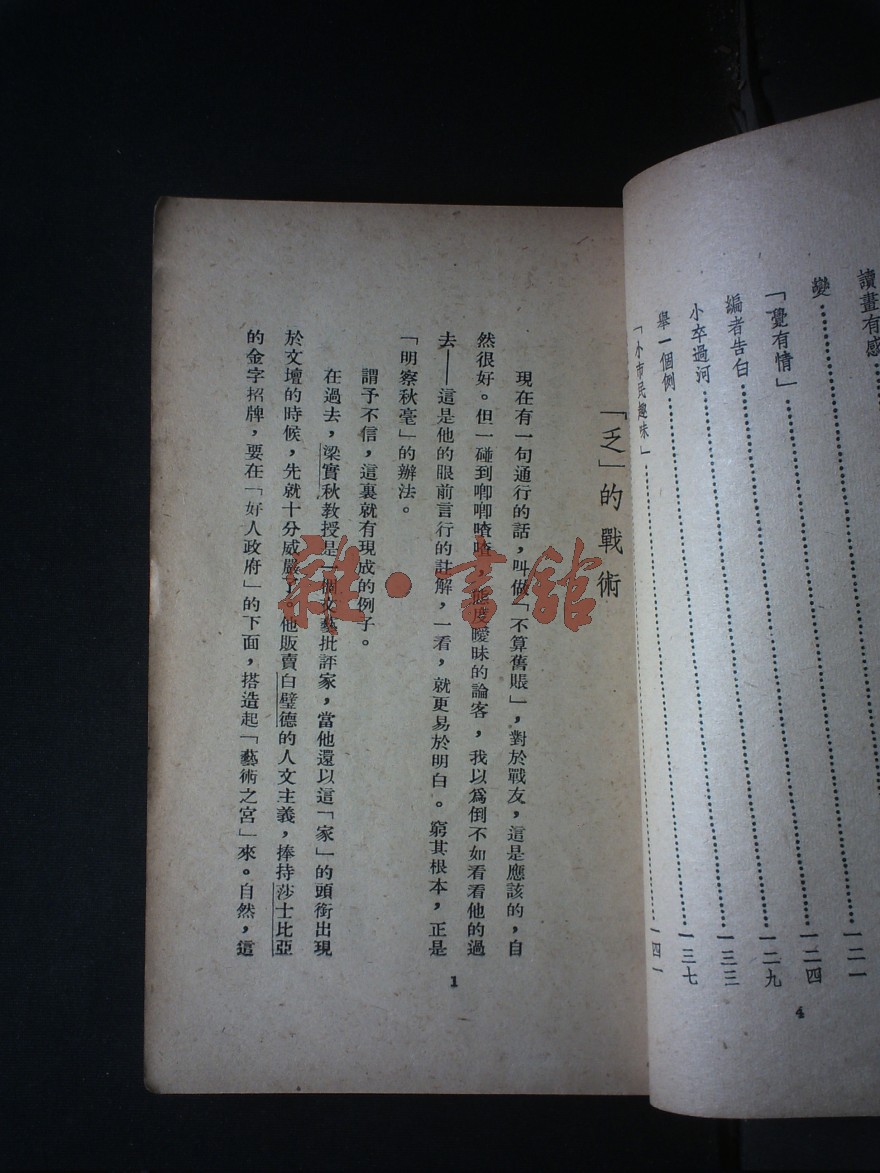 讀畫有感
變……一二一
「㬅有情」……一二四
編者告白……一二九
小卒過河……一三三
舉一個例……一三七
「小市民趣味」……一四一
4
「乏」的戰術
現在有一句通行的話，叫做「不算舊賬」，對於戰友，這是應該的，自
然很好。但一碰到唧唧喳喳，態度曖昧的論客，我以爲倒不如看看他的過
去——這是他的眼前言行的註解，一看，就更易於明白。窮其根本，正是
「明察秋毫」的辦法。
謂予不信，這裏就有現成的例子。
在過去，梁實秋教授是一個文藝批評家，當他還以這「家」的頭銜出現
於文壇的時候，先就十分威嚴了。他販賣白璧德的人文主義，捧持莎士比亞
的金字招牌，要在「好人政府」的下面，搭造起「藝術之宮」來。自然，這
1
雜·書館